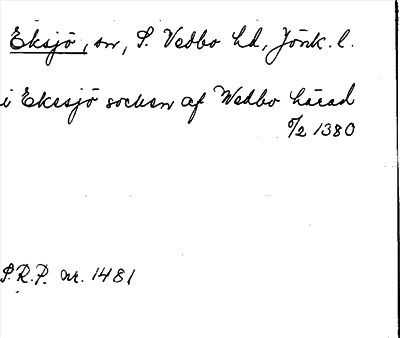 Eksjö, sn, S. Vedbo hd, Jönk. l.
i Ekesjö socken af Wedbo härad
6/2 1380
S.R.P. nr. 1481